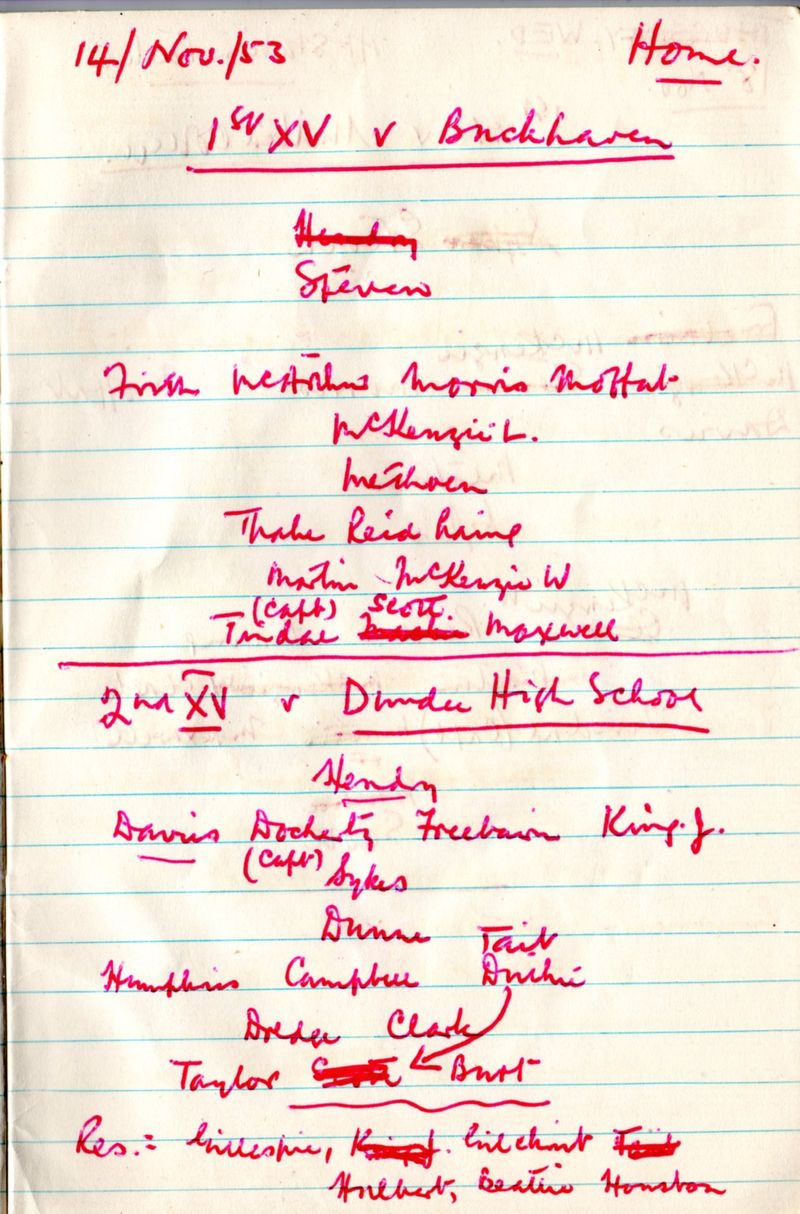 14/Nov./53 Home.
1st XV v Buckhaven
Hendry
Steven
Firth McArthur Morris Moffat
McKenzie L.
Methven
Reid Laing
Martin McKenzie W
(Capt) Scott.
Tindal Maxwell
2nd XV v Dundee High School
Hendry
Davies Docherty Freebairn King. J.
(Capt) Sykes
Dunne Tait
Humphries Campbell Duthie
Clark
Taylor Scott Burt
Res.: Gillespie, King J. Gilchrist Tait
Hulbert, Beattie Houston